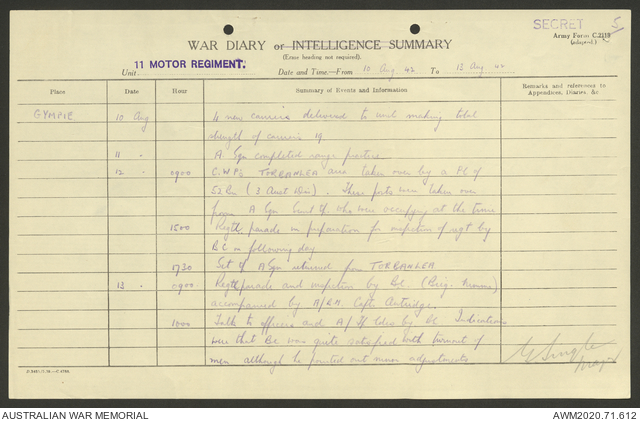 SECRET 5
Army Form C.2118
(adapted.)
WAR DIARY or INTELLIGENCE SUMMARY
(Erase heading not required).
11 MOTOR REGIMENT.
Unit
Date and Time—From 10 Aug 42 To 13 Aug 42
Place Date Hour Summary of Events and Information Remarks and references to Appendices, Diaries, &c
GYMPIE 10 Aug 4 new carriers delivered to unit making total
strength of carriers 19
11 . A Sqn completed range practice
12 . 0900 C.W.PS TORBANLEA area taken over by a Pl of
52 Bn (3 Aust Div). These posts were taken over
from A Sqn who were occupying at the time
1500 Regtl parade in preparation for inspection of regt by
BC on following day
1730 Sect of A Sqn returned from TORBANLEA
13 . 0900 Regtl parade and inspection by Bc. (Brig.
accompanied by A/B.M. Capt.
1000 Talks to officers and A/ Ldrs by Bc Indications
were that Bc was quite satisfied with turnout of
men although he pointed out minor adjustments
Major
AUSTRALIAN WAR MEMORIAL
AWM2020.71.612